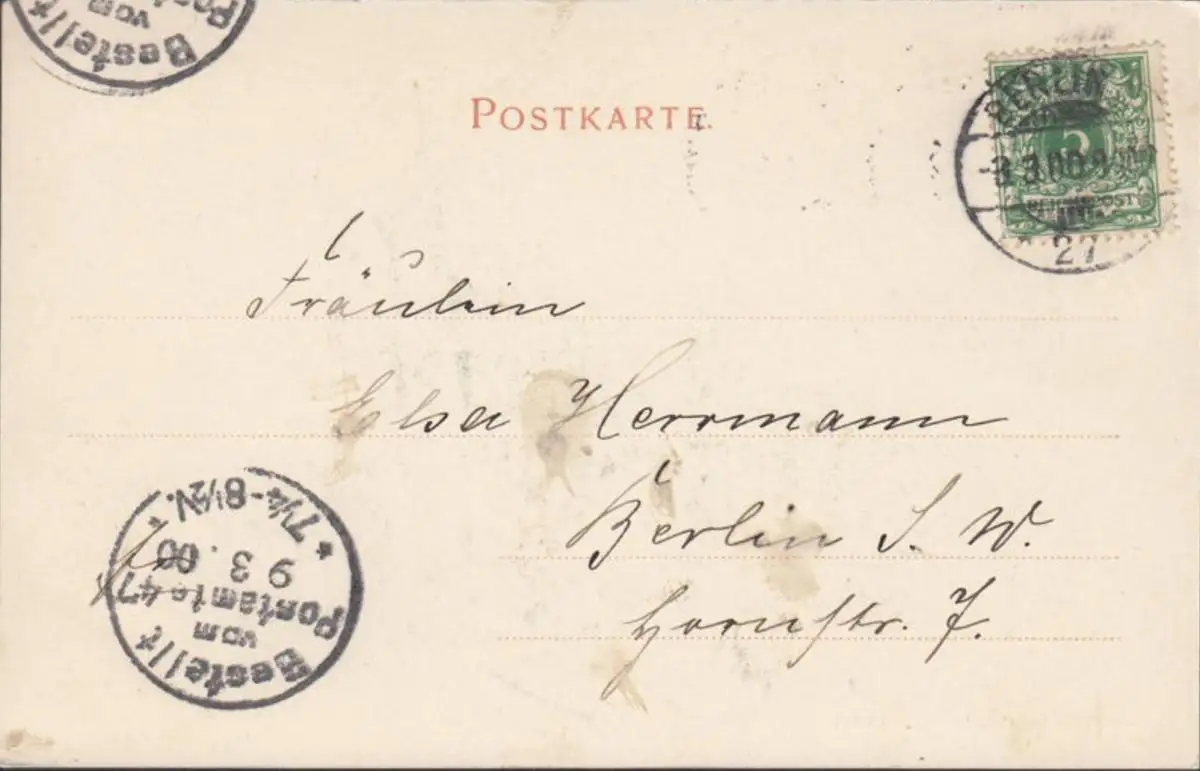 Bestellt
vom
POSTKARTE.
BERLIN
5
REICHSPOST
27
Fräulein
Elsa Herrmann
Berlin S. W.
Hornstr. 7.
Bestellt
vom
Postamte 47
9 3. 00
* 7¼-8½V. *